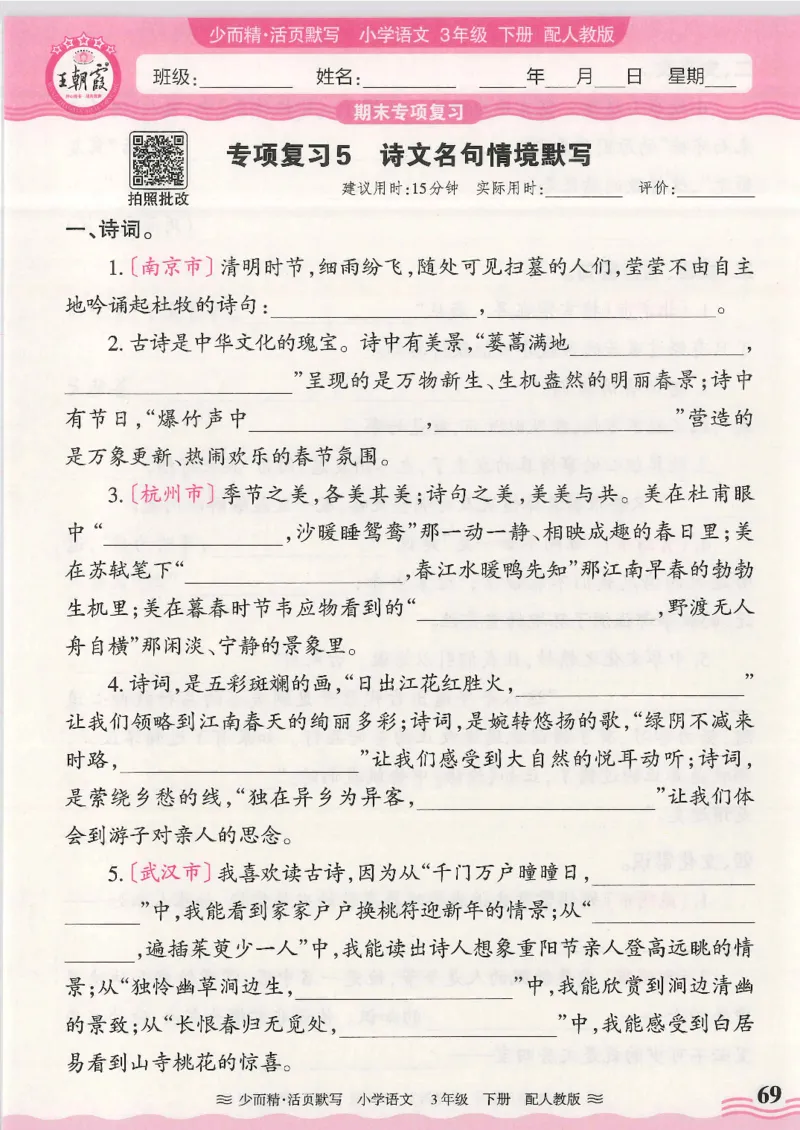 少而精·活页默写 小学语文 3年级 下册 配人教版
王朝霞
班级:__________ 姓名:__________ ____年___月___日 星期___
期末专项复习
拍照批改
专项复习5 诗文名句情境默写
建议用时:15分钟 实际用时:________ 评价:________
一、诗词。
1.〔南京市〕清明时节,细雨纷飞,随处可见扫墓的人们,莹莹不由自主
地吟诵起杜牧的诗句:____________________,____________________。
2. 古诗是中华文化的瑰宝。诗中有美景,“蒌蒿满地________________,
____________________”呈现的是万物新生、生机盎然的明丽春景;诗中
有节日,“爆竹声中________________,______________________”营造的
是万象更新、热闹欢乐的春节氛围。
3.〔杭州市〕季节之美,各美其美;诗句之美,美美与共。美在杜甫眼
中“________________,沙暖睡鸳鸯”那一动一静、相映成趣的春日里;美
在苏轼笔下“____________________,春江水暖鸭先知”那江南早春的勃勃
生机里;美在暮春时节韦应物看到的“______________________,野渡无人
舟自横”那闲淡、宁静的景象里。
4. 诗词,是五彩斑斓的画,“日出江花红胜火,____________________”
让我们领略到江南春天的绚丽多彩;诗词,是婉转悠扬的歌,“绿阴不减来
时路,______________________”让我们感受到大自然的悦耳动听;诗词,
是萦绕乡愁的线,“独在异乡为异客,______________________”让我们体
会到游子对亲人的思念。
5.〔武汉市〕我喜欢读古诗,因为从“千门万户曈曈日,______________
_______”中,我能看到家家户户换桃符迎新年的情景;从“______________
_______,遍插茱萸少一人”中,我能读出诗人想象重阳节亲人登高远眺的情
景;从“独怜幽草涧边生,____________________”中,我能欣赏到涧边清幽
的景致;从“长恨春归无觅处,____________________”中,我能感受到白居
易看到山寺桃花的惊喜。
少而精·活页默写 小学语文 3年级 下册 配人教版
69